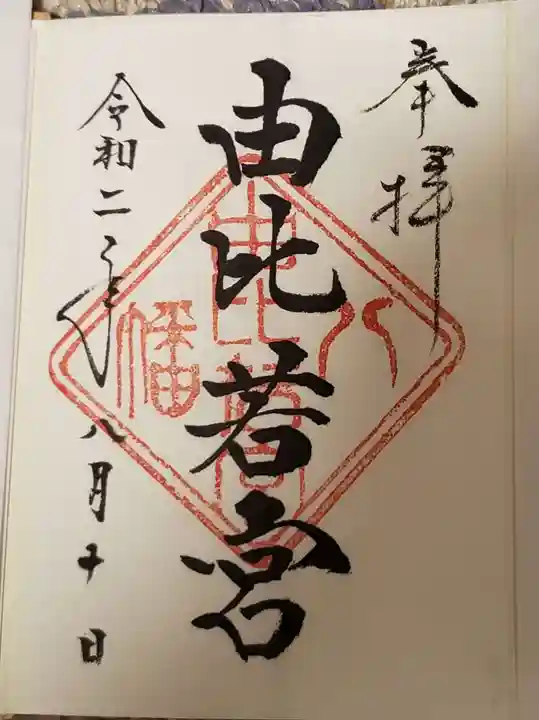 奉拝
八
由比若宮
由比若宮
幡
令和二年八月十日